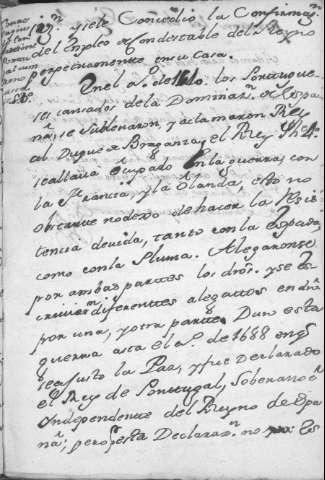 y siete Concedio la Confirmaz.n
del Empleo de Condestable del Reyno
perpetuamente en su Casa.
En el a.o de 1640. los Portugue-
ses cansados de la Dominaz.n de Espa-
ña, se sublevaron, y aclamaron Rey
al Duque de Berganza, el Rey Ph.e 4.o
se allava ocupado en la guerra, con
la Francia, y la Olanda, esto no
obstante no dexo de hacer la resis-
tencia devida, tanto con la Espada,
como con la Pluma. Alegaronse
por ambas partes los dros. y se es-
crivieron diferentes alegattos en dro.
por una, y otra parte. Duro esta
guerra asta el a.o de 1688 en q.e
se ajusto la Paz, y fue Declarado
el Rey de Portugal, Soberano é
Independente del Reyno de Espa-
ña; pero esta Declaraz.n no es